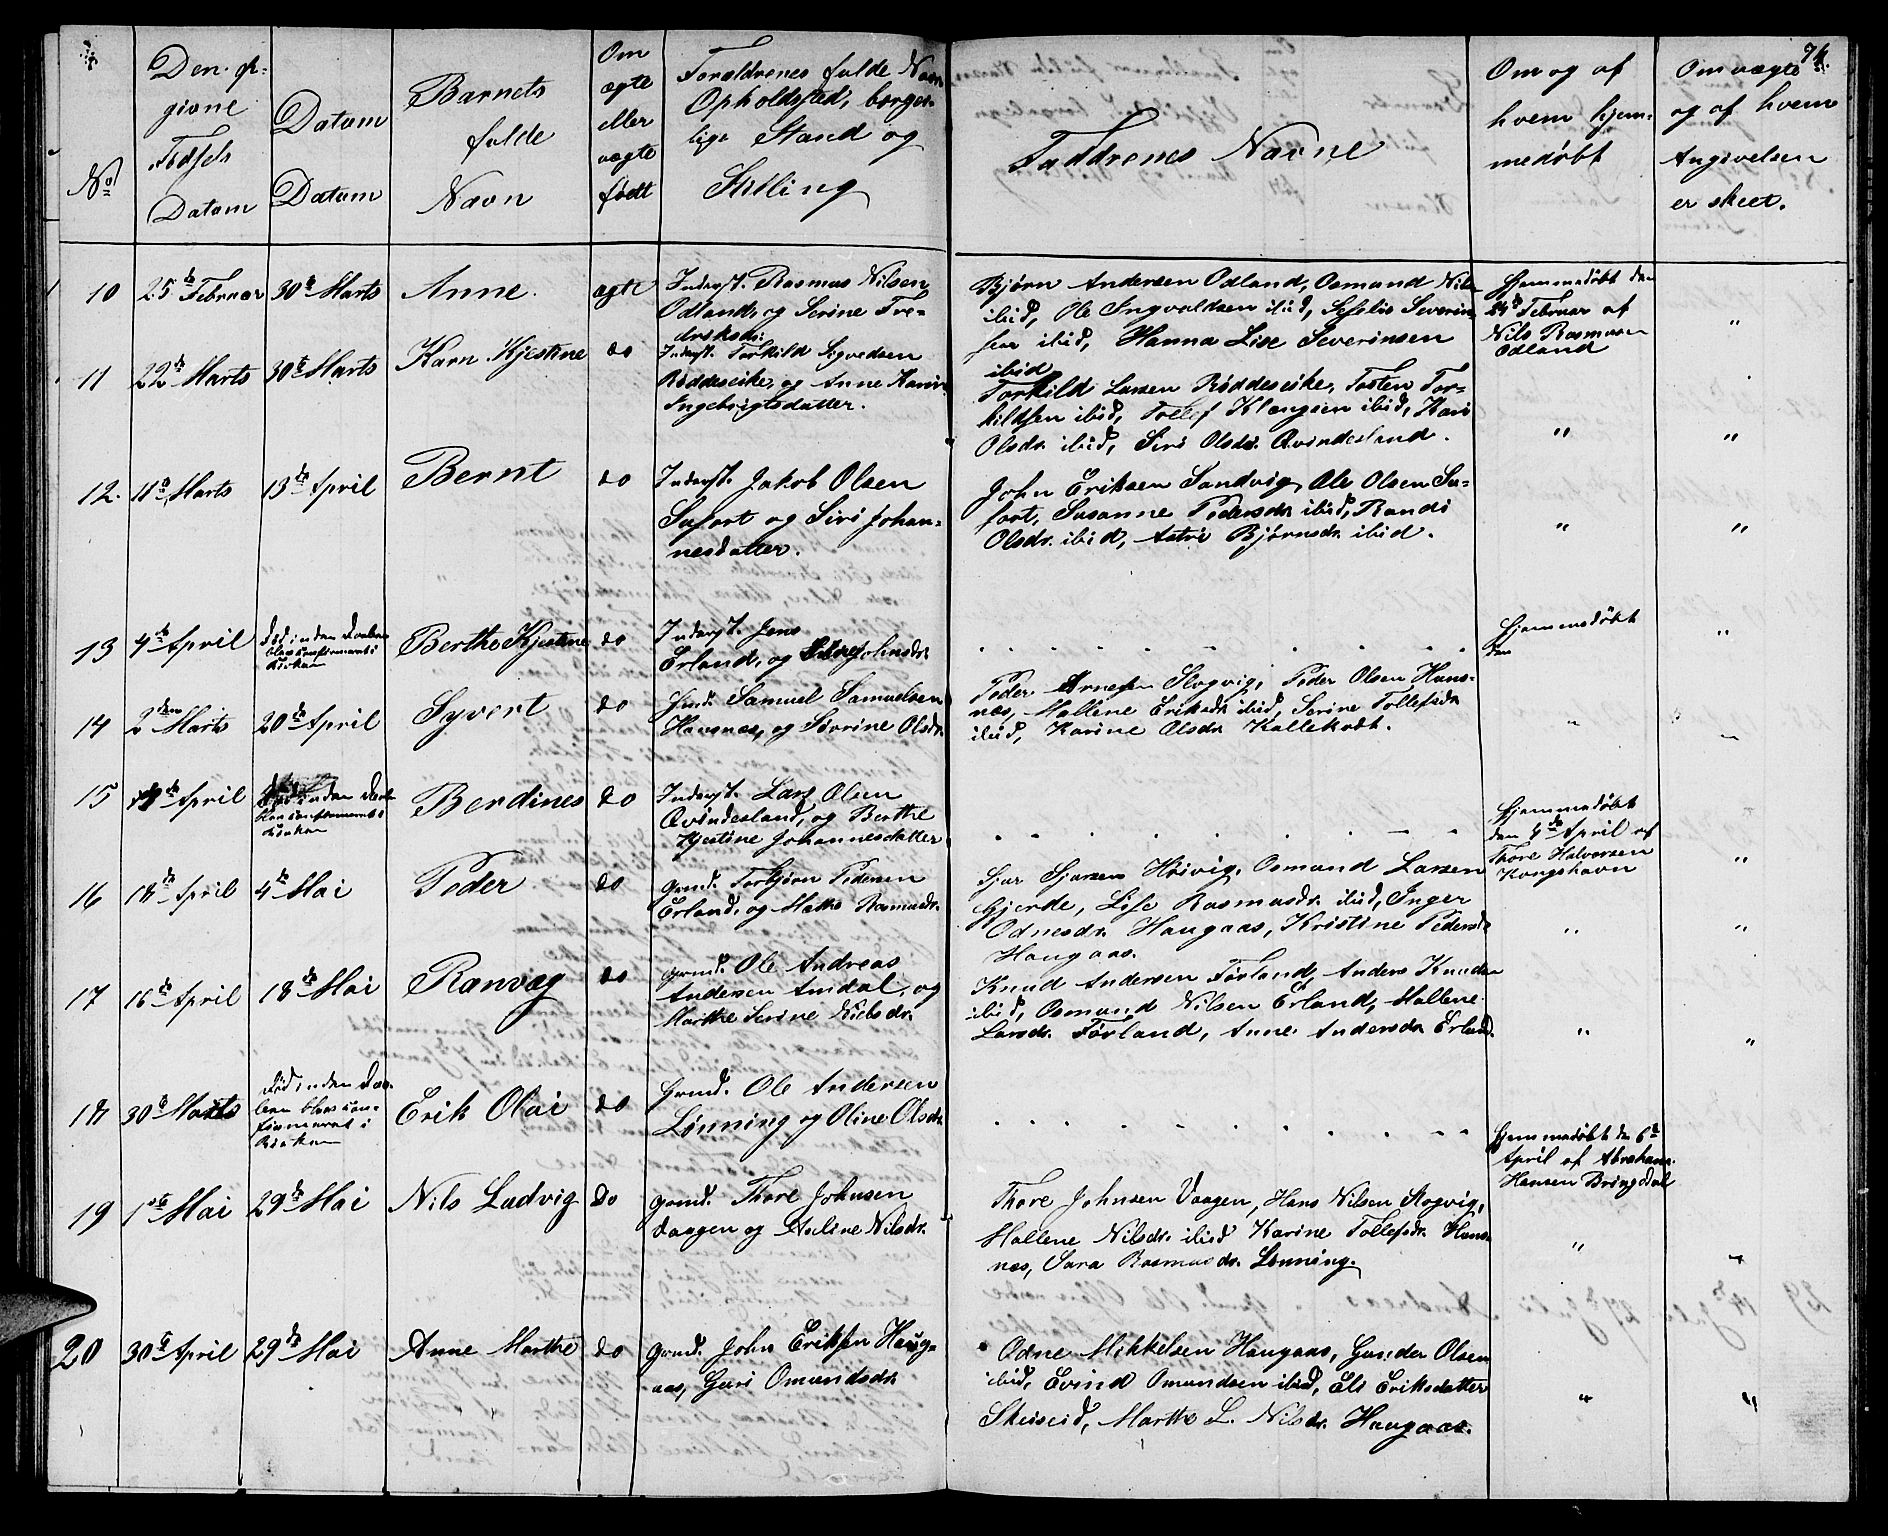 74.
No
Den op-
givne
Fødsels
Datum
Datum
Datum
Barnets
fulde
Navn
Om
ægte
eller
uægte
født
Forældrenes fulde Navn
Opholdsted, borger-
lige Stand og
Stilling
Faddrenes Navne
Om og af
hvem hjem-
medøbt
Om uægte
og af hvem
Angivelsen
er skeet.
10
25de Februar
30te Marts
Anne.
ægte
Inderst. Rasmus Nilsen
Odland, og Serine Fre-
driksdr.
Bjørn Andersen Odland, Osmund Nils
ibid, Ole Ingvaldsen ibid, Severin
ibid, Hanna Lise Severinsen
ibid
Hjemmedøbt den
Februar af
Nils Rasmusen
Odland
"
11
22de Marts
30te Marts
Karn Kjestine
do
Inderst. Torkild Sigvedsen
Røddeseike, og Anne Karin
Ingebrigtsdatter.
Torkild Larsen Røddeseike, Tosten Tor-
kildsen ibid, Tollef Klængsen ibid, Kari
Olsdr. ibid, Siri Olsdr. Qvindesland.
"
"
12.
11te Marts
13de April
Bernt
do
Inderst. Jakob Olsen
Sufort og Siri Johan-
nesdatter.
John Eriksen Sandvig, Ole Olsen Su-
fort, Susanne Pedersdr. ibid, Randi
Olsdr. ibid, Astri Bjørnsdr. ibid.
"
"
13
4de April
Død inden Daaben
blev confirmeret i
Kirken
Berthe Kjestine
do
Inderst. Jens
Erland, og Johnsdr.
Hjemmedøbt
den
"
14
2den Marts
20de April
Syvert
do
Gmd. Samuel Samuelsen
Hausnæs, og Sørine Olsdr.
Peder Arnesen Slogvig, Peder Olsen Haus-
næs, Mallene Eriksdr ibid, Serine Tollefsdr.
ibid, Karine Olsdr. Kallekodt.
"
"
15
April
Død inden Daab
blev confirmeret i
Kirken
Berdines
do
Inderst. Lars Olsen
Qvindesland, og Berthe
Kjestine Johannesdatter
Hjemmedøbt
den 4de April af
Thore Halversen
Kongshavn
"
16
18de April
4de Mai
Peder
do
Gmd. Torbjørn Pedersen
Erland, og Malte Rasmusdr.
Sjur Sjursen Høivig, Osmund Larsen
Gjerde, Lise Rasmusdr. ibid, Inger
Odnesdr. Haugaas, Kristine Pedersdr
Haugaas.
"
"
17
16de April
18de Mai
Ranvæg
do
Gmd. Ole Andreas
Andersen Amdal, og
Marthe Serine Nielsdr.
Knud Andersen Førland, Anders Knudsen
ibid, Osmund Nilsen Erland, Mallene
Larsdr. Førland, Anne Andersdr. Erland.
"
"
18
30te Marts
Død inden Daa-
ben blev con-
firmeret i
Kirken
Erik Olai
do
Gmd. Ole Andersen
Lønning og Oline Olsdr.
Hjemmedøbt den 6te
April af Abraham
Hansen Bringedal
19
1ste Mai
29de Mai
Nils Ludvig
do
Gmd. Thore Johnsen
Vaagen og Malene Nilsdr.
Thore Johnsen Vaagen, Hans Nilsen Slogvig,
Mallene Nilsdr. ibid Karine Tollefsdr. Haus-
næs, Sara Rasmusdr. Lønning.
"
"
20
30te April
29de Mai
Anne Marthe
do
Gmd. John Eriksen Haug-
aas, Guri Omundsdr.
Odne Mikkelsen Haugaas, Gunder Olsen
ibid, Evind Omundsen ibid, Eli Eriksdatter
Skeiseid, Marthe L. Nilsdr. Haugaas.
"
"